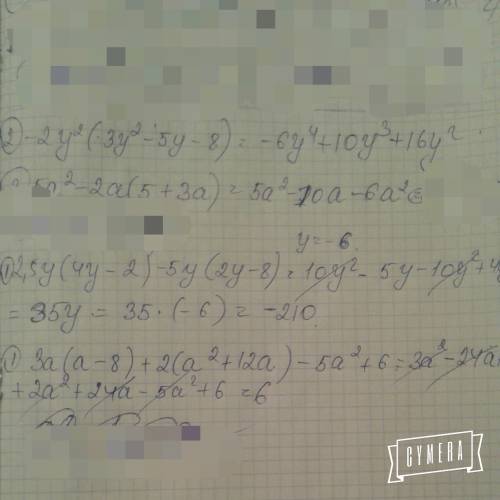 ② -2y²(3y²-5y-8) = -6y⁴+10y³+16y²
5a²-2a(5+3a) = 5a²-10a-6a²
y=-6.
① 2,5y(4y-2)-5y(2y-8) = 10y²-5y-10y²+4
= 35y = 35·(-6) = -210.
① 3a(a-8)+2(a²+12a)-5a²+6 = 3a²-24a
+2a²+24a-5a²+6 = 6
CYMERA